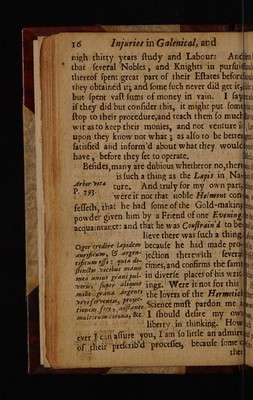 16 Injuries in Galenical, and
nigh thirty years study and Labour: And
that several Nobles, and Knights in pursu
thereof spent great part of their Estates before
they obtained it; and some such never did get it,
but spent vast sums of money in vain. I say
if they did but consider this, it might put some
stop to their procedure, and teach them so much
wit as to keep their monies, and not venture
upon they know not what; as also to be better
satisfied and inform'd about what they would
have, before they set to operate.
Besides, many are dubious whether or no, ther
is such a thing as the Lapis in Na-
Arbor vitæ
P. 793.
ture. And truly for my own part,
were it not that noble Helmont con-
fesseth, that he had some of the Gold-making
powder given him by a Friend of one Evening
acquaintance: and that he was Constrain'd to be
lieve there was such a thing,
because he had made pro-
jection therewith several
times, and confirms the same
in diverse places of his writ-
ings. Were it not for this
the lovers of the Hermetick
Science must pardon me
I should desire my own
liberty in thinking. How
Cogor credere lapidem
aurificum, &
quia
vicibus manu
mea unius grani pul-
super aliquot
mille grana Argenti
projec-
tionem feci,
multorum corona, &c.
ever I can assure you, I am so little an admire
of their prescrib'd processes, because some
ther